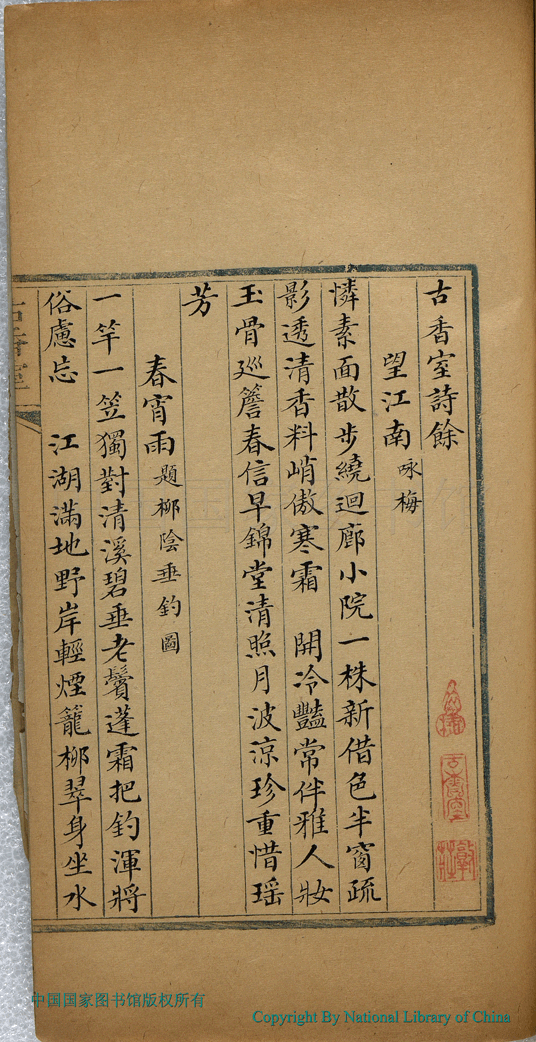 古香室詩餘
望江南 咏梅
憐素面散步繞迴廊小院一株新借色半窗疏
影透清香料峭傲寒霜 開冷豔常伴雅人妝
玉骨廵簷春信早錦堂清照月波涼珍重惜瑶
芳
春宵雨 題柳陰垂釣圖
一竿一笠獨對清溪碧垂老鬢蓬霜把釣渾將
俗慮忘 江湖滿地野岸輕煙籠柳翠身坐水
中国国家图书馆版权所有
Copyright By National Library of China